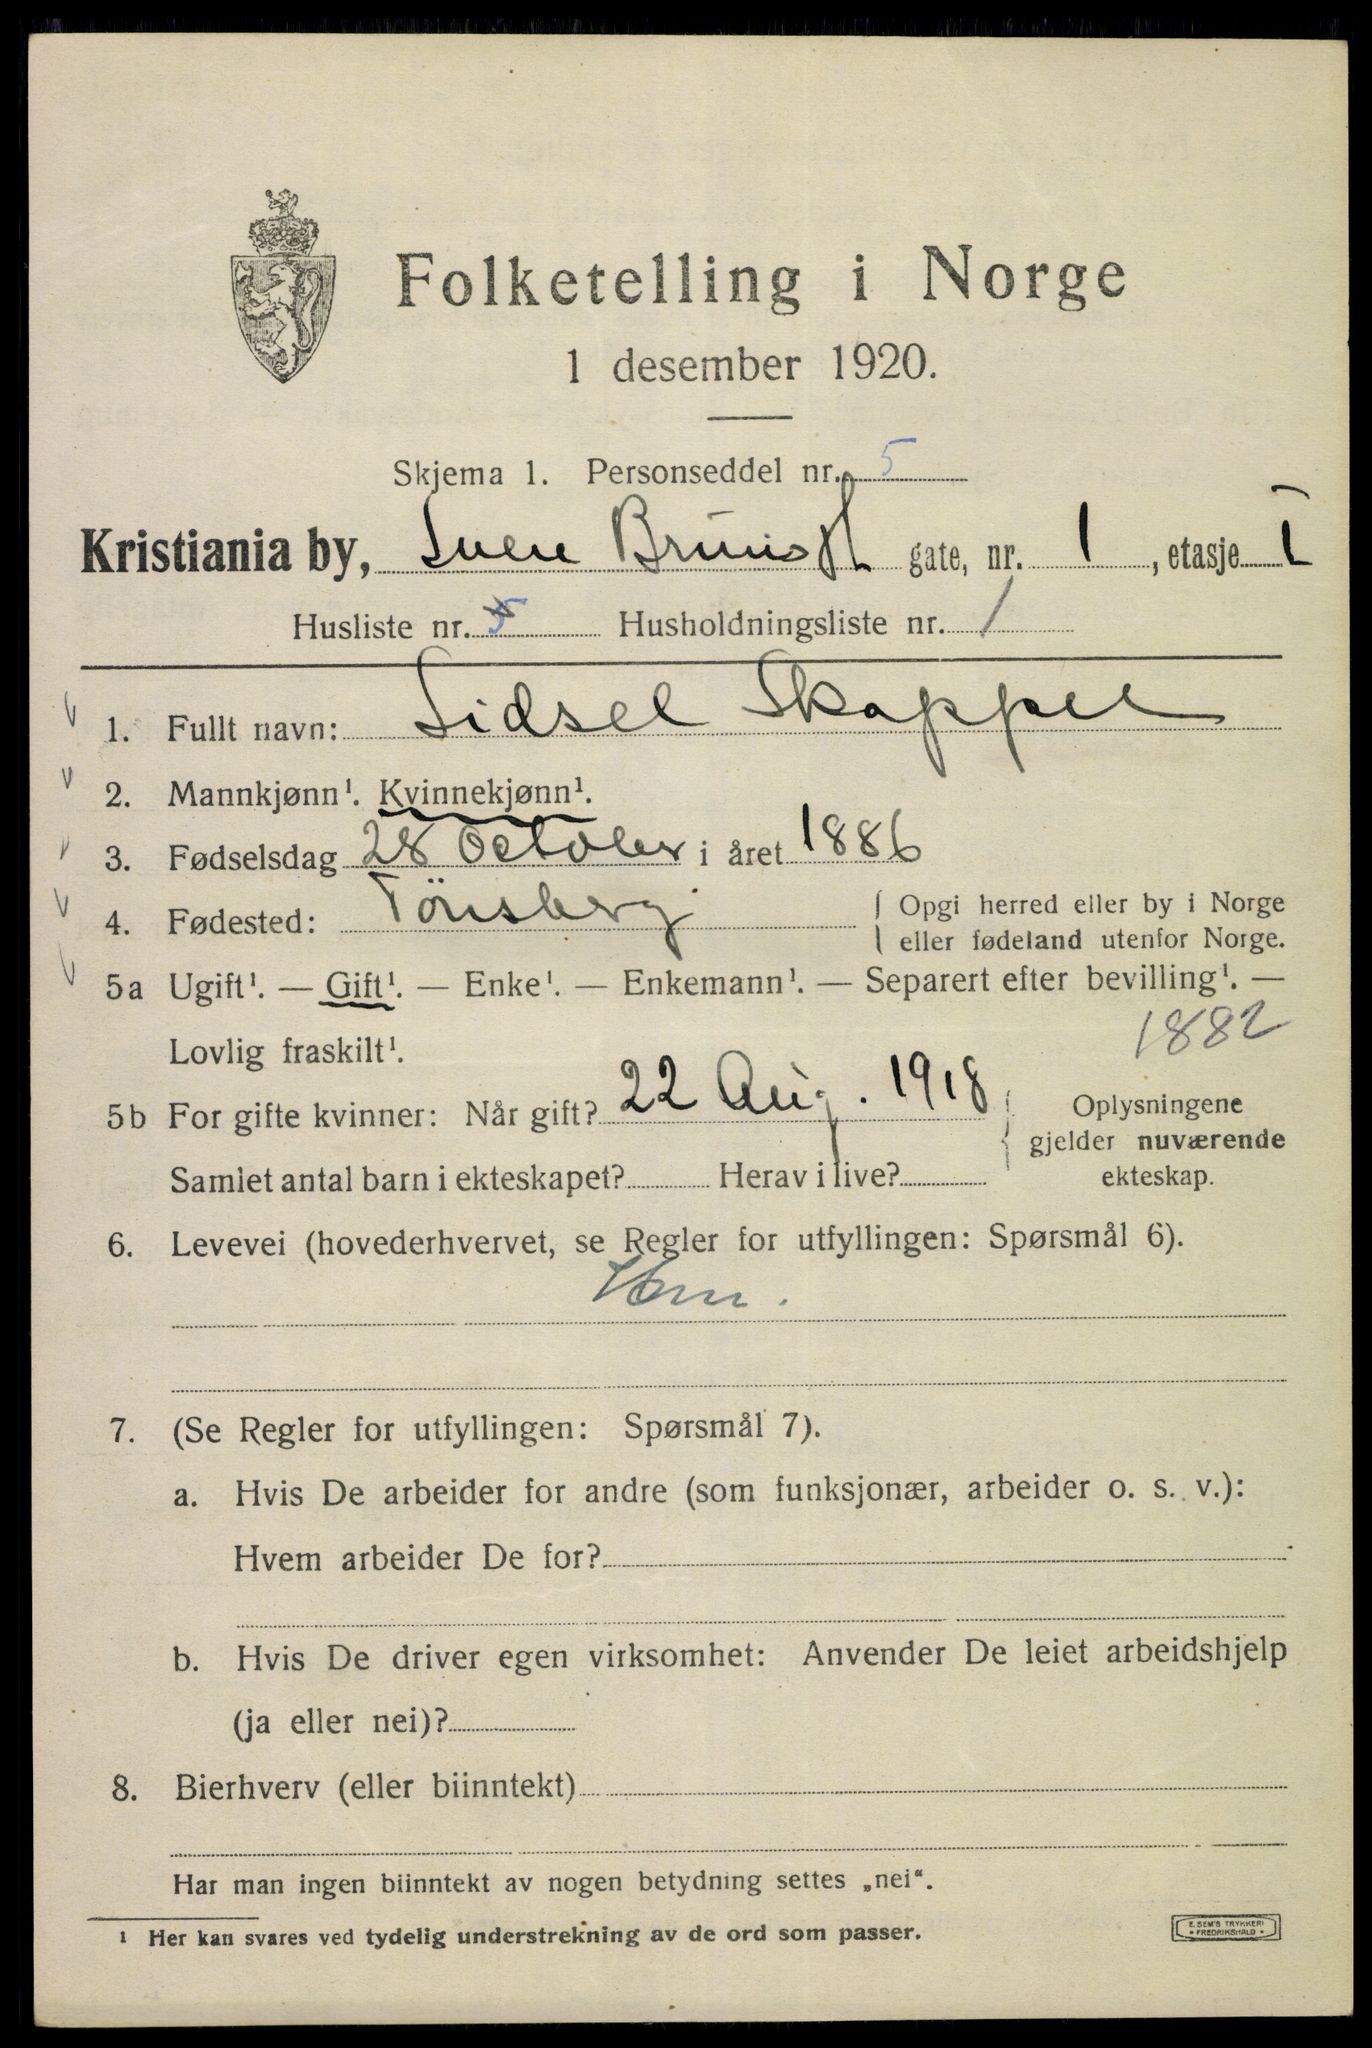 Folketelling i Norge
1 desember 1920.
Skjema 1. Personseddel nr. 5
Kristiania by, Sven Bruns gt gate, nr. 1, etasje I
Husliste nr. 5 Husholdningsliste nr. 1
1. Fullt navn: Lidsel Skappel
2. Mannkjønn¹. Kvinnekjønn¹.
3. Fødselsdag 28 October i året 1886
4. Fødested: Tönsberg { Opgi herred eller by i Norge
eller fødeland utenfor Norge.
5a Ugift¹. — Gift¹. — Enke¹. — Enkemann¹. — Separert efter bevilling¹. —
Lovlig fraskilt¹. 1882
5b For gifte kvinner: Når gift? 22 Aug. 1918 { Oplysningene
gjelder nuværende
Samlet antal barn i ekteskapet? Herav i live? ekteskap.
6. Levevei (hovederhvervet, se Regler for utfyllingen: Spørsmål 6).
7. (Se Regler for utfyllingen: Spørsmål 7).
a. Hvis De arbeider for andre (som funksjonær, arbeider o. s. v.):
Hvem arbeider De for?
b. Hvis De driver egen virksomhet: Anvender De leiet arbeidshjelp
(ja eller nei)?
8. Bierhverv (eller biinntekt)
Har man ingen biinntekt av nogen betydning settes „nei“.
¹ Her kan svares ved tydelig understrekning av de ord som passer.
E. SEM'S TRYKKERI
• FREDRIKSHALD •